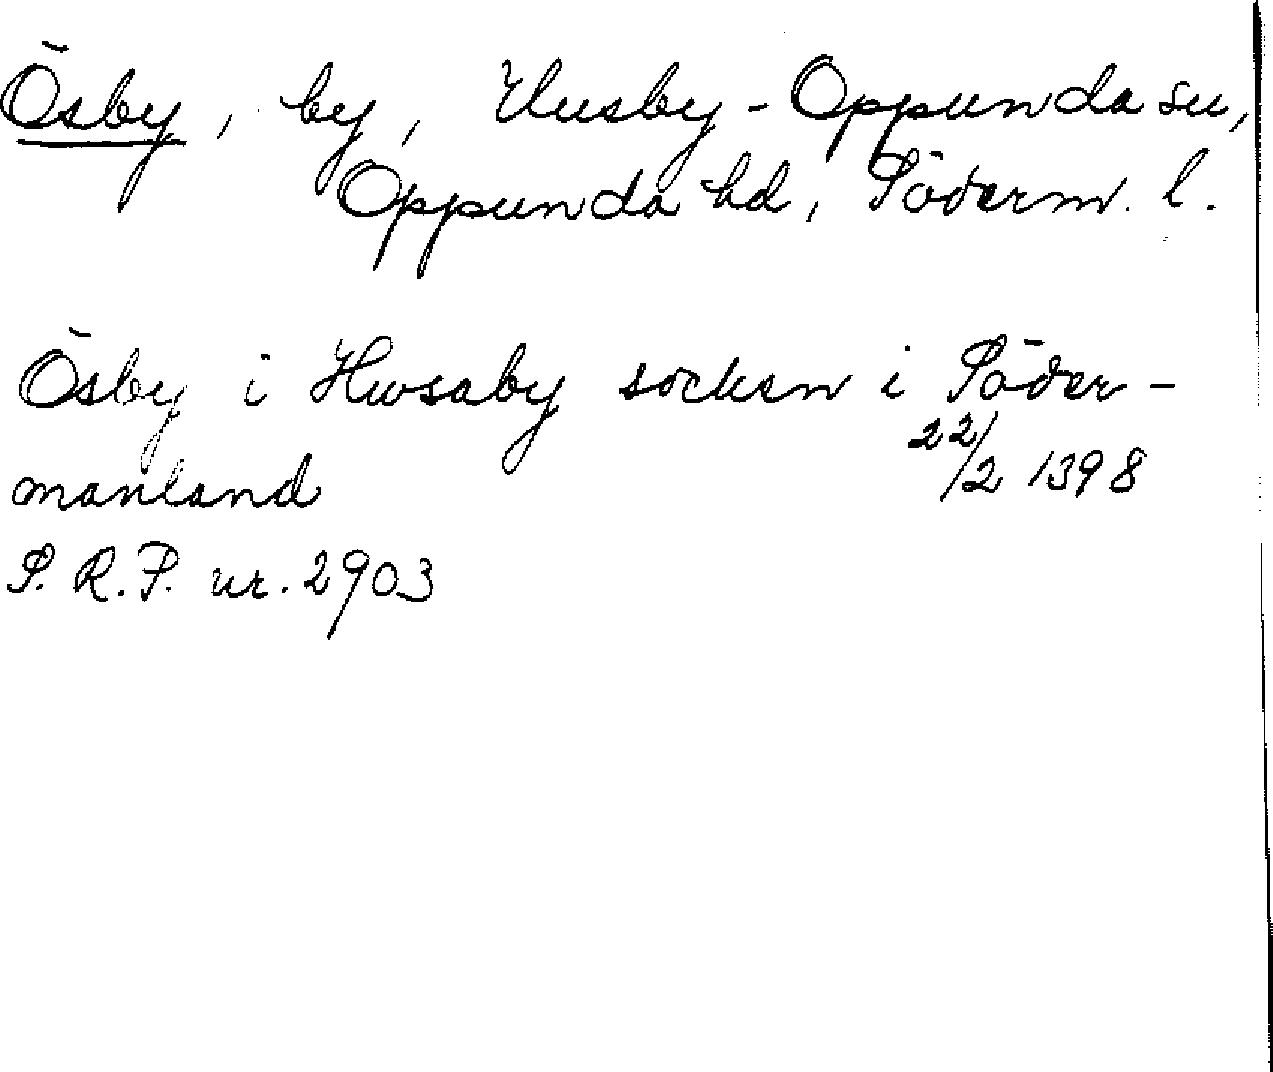 Ösby, by, Husby-Oppunda sn,
Oppunda hd, Söderm. l.
Ösby i Hwsaby socken i Söder-
manland 22/2 1398
S.R.P. nr. 2903